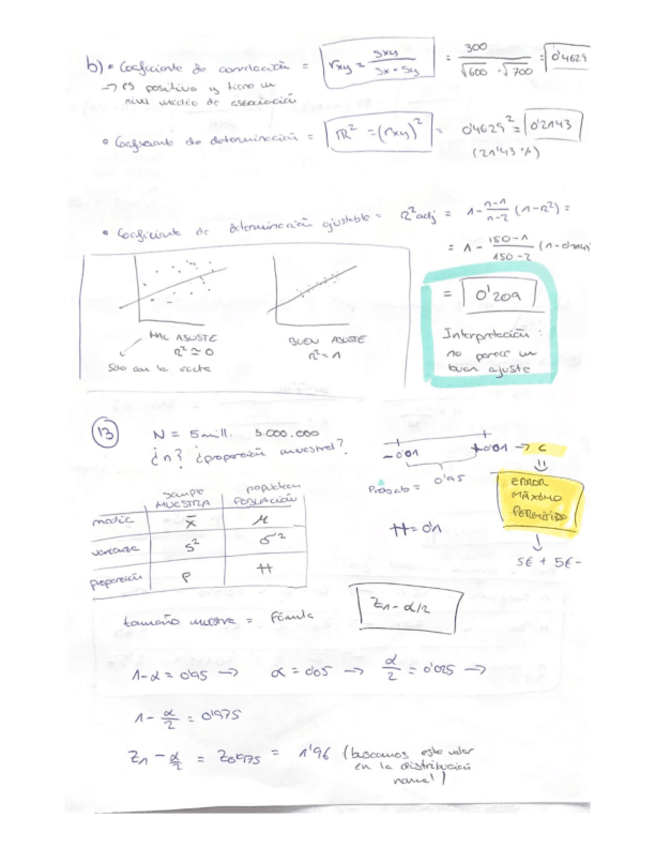 b) • Coeficiente de correlación = rxy = Sxy / Sx · Sy = 300 / √600 · √700 = 0'4629
→ es positivo y tiene un
nivel medio de asociación
• Coeficiente de determinación = R² = (rxy)² = 0'4629² = 0'2143
(21'43 %)
• Coeficiente de determinación ajustable = R² adj = 1 - n-1 / n-2 (1-R²) =
= 1 - 150-1 / 150-2
= 0'209
MAL AJUSTE
R² ≃ 0
BUEN AJUSTE
R² = 1
Interpretación:
no parece un
buen ajuste
13 N = 5 mill. 5.000.000
¿n? ¿proporción muestral?
-0'01 +0'01 → E
0'95
ERROR
MÁXIMO
PERMITIDO
5€ + 5€ -
π = 0'1
MUESTRA POBLACIÓN
media x̄ μ
varianza S² σ²
proporción P π
tamaño muestra = Fórmula Z1-α/2
1-α = 0'95 → α = 0'05 → α/2 = 0'025 →
1 - α/2 = 0'975
Z1-α/2 = Z0'975 = 1'96 (buscamos este valor
en la distribución
normal)